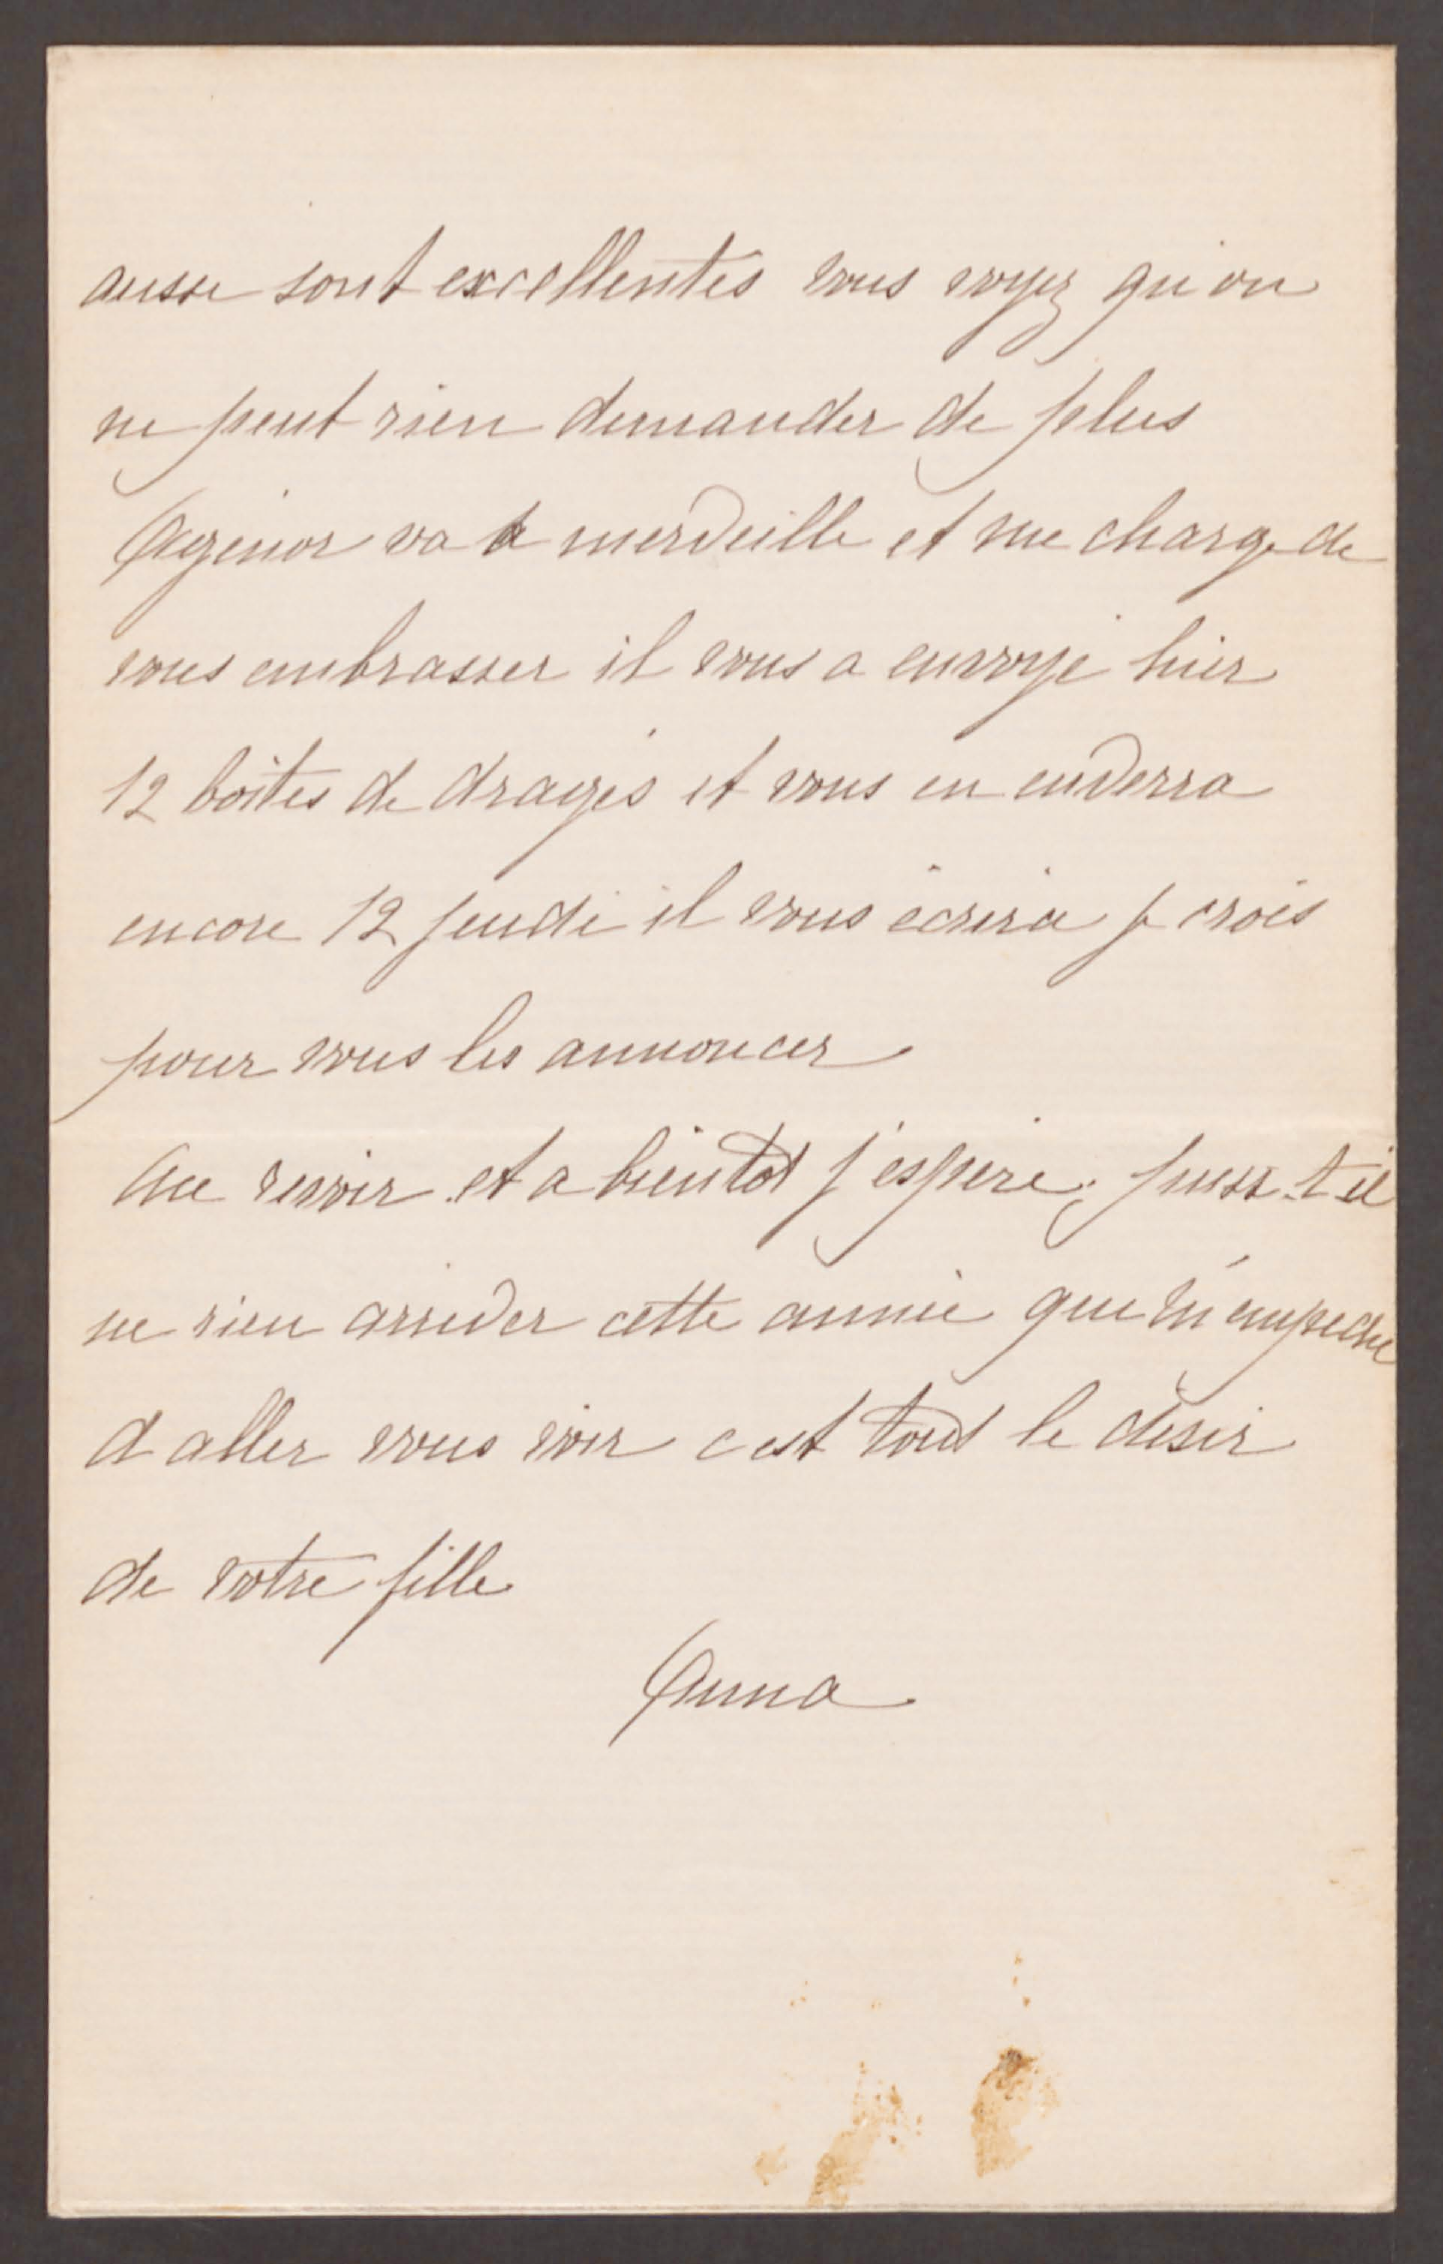 aussi sont excellentes vous voyez qu'on
ne peut rien demander de plus
Agénor va a merveille et me charge de
vous embrasser il vous a envoyé hier
12 boîtes de dragés et vous en enverra
encore 12 jeudi il vous ècrira je crois
pour vous les annoncer
Au revoir et a bientot j'espère, puisse t-il
ne rien arriver cette année qui m'empeche
d aller vous voir c est tout le désir
de votre fille
Anna